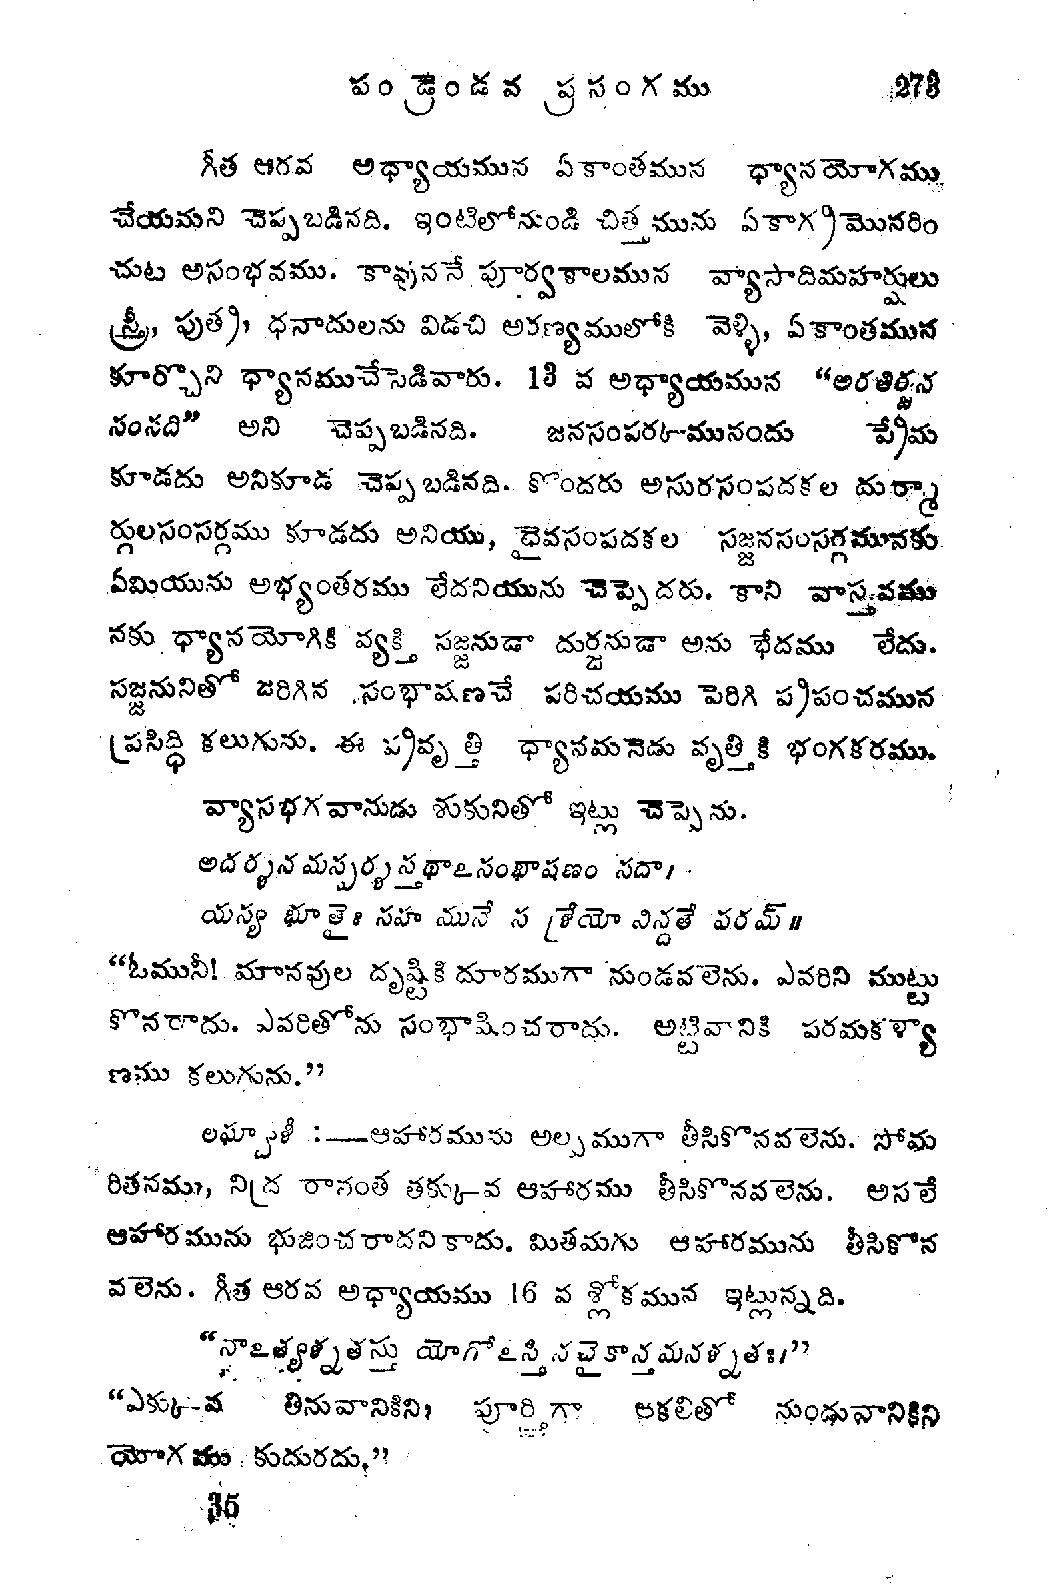 పండ్రెండవ ప్రసంగము 273
గీత ఆరవ అధ్యాయమున ఏకాంతమున ధ్యానయోగము
చేయమని చెప్పబడినది. ఇంటిలోనుండి చిత్తమును ఏకాగ్రమొనరిం
చుట అసంభవము. కావుననే పూర్వకాలమున వ్యాసాదిమహర్షులు
స్త్రీ, పుత్ర, ధనాదులను విడచి అరణ్యములోకి వెళ్ళి, ఏకాంతమున
కూర్చొని ధ్యానముచేసెడివారు. 13 వ అధ్యాయమున “అరతిర్జన
సంసది” అని చెప్పబడినది. జనసంపర్కమునందు ప్రేమ
కూడదు అనికూడ చెప్పబడినది. కొందరు అసురసంపదకల దుర్మా
ర్గులసంసర్గము కూడదు అనియు, దైవసంపదకల సజ్జనసంసర్గమునకు
ఏమియును అభ్యంతరము లేదనియును చెప్పెదరు. కాని వాస్తవము
నకు ధ్యానయోగికి వ్యక్తి సజ్జనుడా దుర్జనుడా అను భేదము లేదు.
సజ్జనునితో జరిగిన సంభాషణచే పరిచయము పెరిగి ప్రపంచమున
ప్రసిద్ధి కలుగును. ఈ ప్రవృత్తి ధ్యానమనెడు వృత్తికి భంగకరము.
వ్యాసభగవానుడు శుకునితో ఇట్లు చెప్పెను.
అదర్శనమస్పర్శస్తథాఽసంభాషణం సదా।
యస్య భూతైః సహ మునే స శ్రేయో విన్దతే పరమ్॥
“ఓమునీ! మానవుల దృష్టికి దూరముగా నుండవలెను. ఎవరిని ముట్టు
కొనరాదు. ఎవరితోను సంభాషించరాదు. అట్టివానికి పరమకళ్యా
ణము కలుగును.”
లఘ్వాశీ :—ఆహారమును అల్పముగా తీసికొనవలెను. సోమ
రితనము, నిద్ర రానంత తక్కువ ఆహారము తీసికొనవలెను. అసలే
ఆహారమును భుజించరాదనికాదు. మితమగు ఆహారమును తీసికొన
వలెను. గీత ఆరవ అధ్యాయము 16 వ శ్లోకమున ఇట్లున్నది.
“నాఽత్యశ్నతస్తు యోగోఽస్తి నచైకాన్తమనశ్నతః।”
“ఎక్కువ తినువానికిని, పూర్తిగా ఆకలితో నుండువానికిని
యోగము కుదురదు.”
35